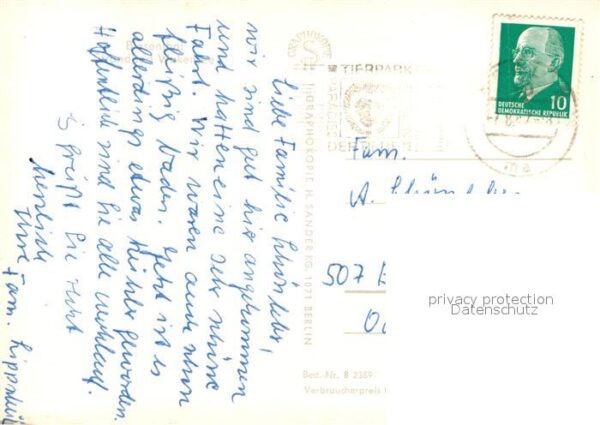 Liebe Familie
wir sind gut hier angekommen
und hatten eine sehr schöne
Fahrt. Wir waren auch schon
fleißig baden. Jetzt ist es
allerdings etwas kühler geworden.
Hoffentlich sind Sie alle wohlauf.
Es grüßt Sie recht
herzlich
Ihre Fam.
TIERPARK
DEUTSCHE
DEMOKRATISCHE REPUBLIK
10
Fam.
A.
507
GRAPHOKOPIE H. SANDER KG. 1971 BERLIN
privacy protection
Datenschutz
Best.-Nr. B 2369
Verbraucherpreis